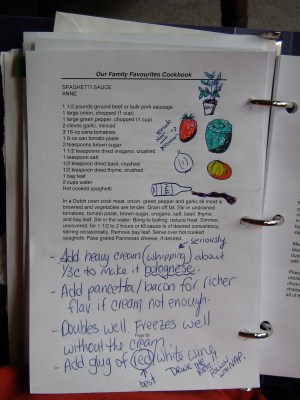 Our Family Favourites Cookbook
SPAGHETTI SAUCE
ANNE
1 1/2 pounds ground beef or bulk pork sausage
1 large onion, chopped (1 cup)
1 large green pepper, chopped (1 cup)
2 cloves garlic, minced
2 16-oz cans tomatoes
1 6-oz can tomato paste
2 teaspoons brown sugar
1 1/2 teaspoons dried oregano, crushed
1 teaspoon salt
1/2 teaspoon dried basil, crushed
1/2 teaspoon dried thyme, crushed
1 bay leaf
2 cups water
Hot cooked spaghetti
In a Dutch oven cook meat, onion, green pepper and garlic till meat is
browned and vegetables are tender. Drain off fat. Stir in undrained
tomatoes, tomato paste, brown sugar, oregano, salt, basil, thyme,
and bay leaf. Stir in the water. Bring to boiling; reduce heat. Simmer,
uncovered, for 1 1/2 to 2 hours or till sauce is of desired consistency,
stirring occasionally. Remove bay leaf. Serve over hot cooked
spaghetti. Pass grated Parmesan cheese, if desired.
seriously
- Add heavy cream (whipping) about
1/3c to make it bolognese.
- Add pancetta/bacon for richer
flav. if cream not enough.
- Doubles well. Freezes well
without the cream.
- Add glug of red/white wine
best